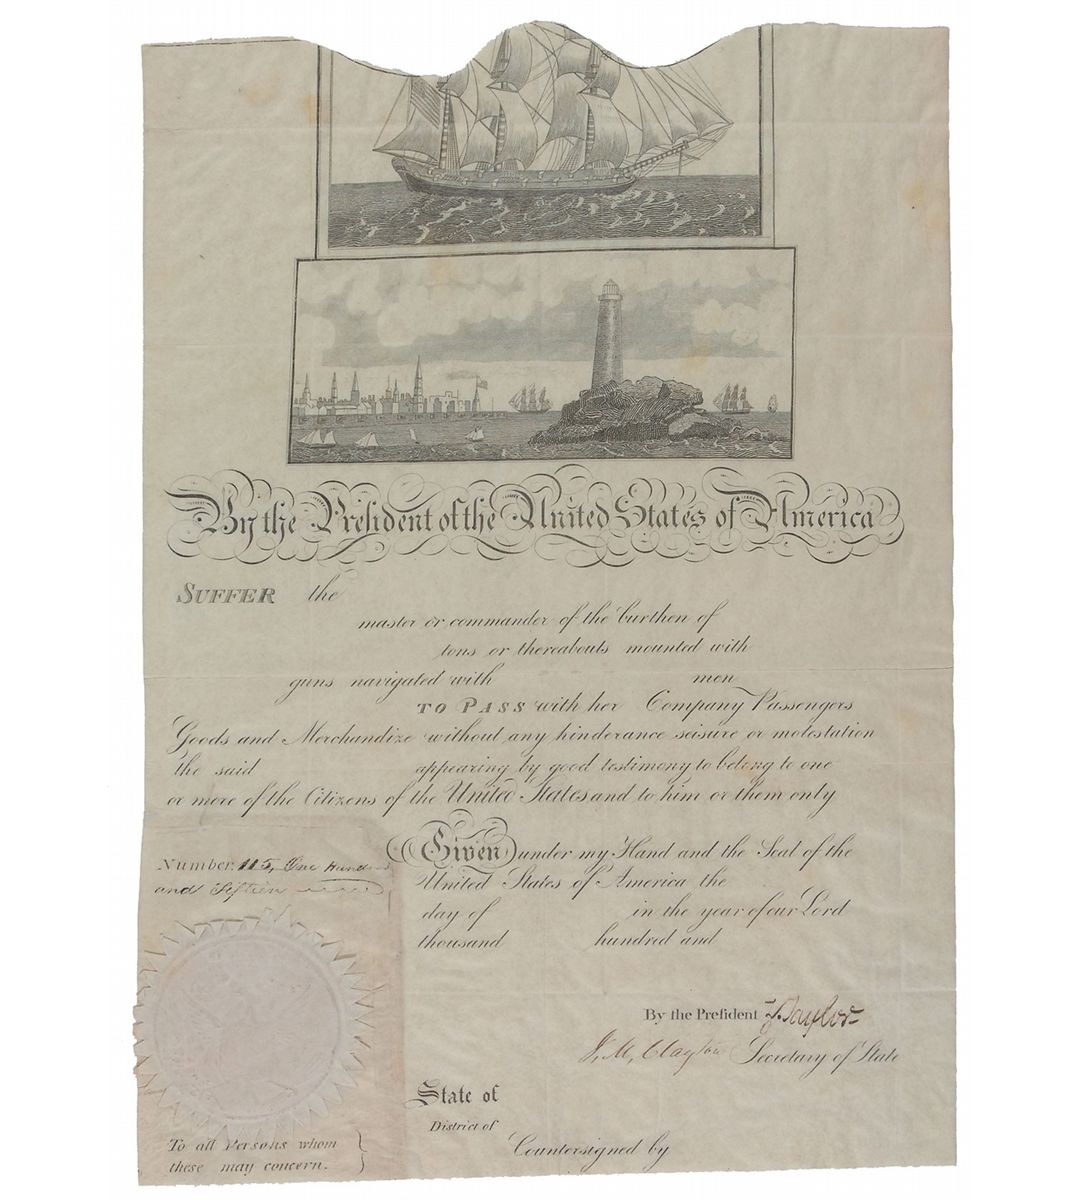 By the President of the United States of America
SUFFER the
master or commander of the burthen of
tons or thereabouts mounted with
guns navigated with men
TO PASS with her Company Passengers
Goods and Merchandize without any hinderance seisure or molestation
the said appearing by good testimony to belong to one
or more of the Citizens of the United States and to him or them only
Number. 115, One Hundred
and Fifteen
Given under my Hand and the Seal of the
United States of America the
day of in the year of our Lord
thousand hundred and
By the Preſident Z. Taylor
J. M. Clayton Secretary of State
State of
District of
Countersigned by
To all Persons whom
these may concern.